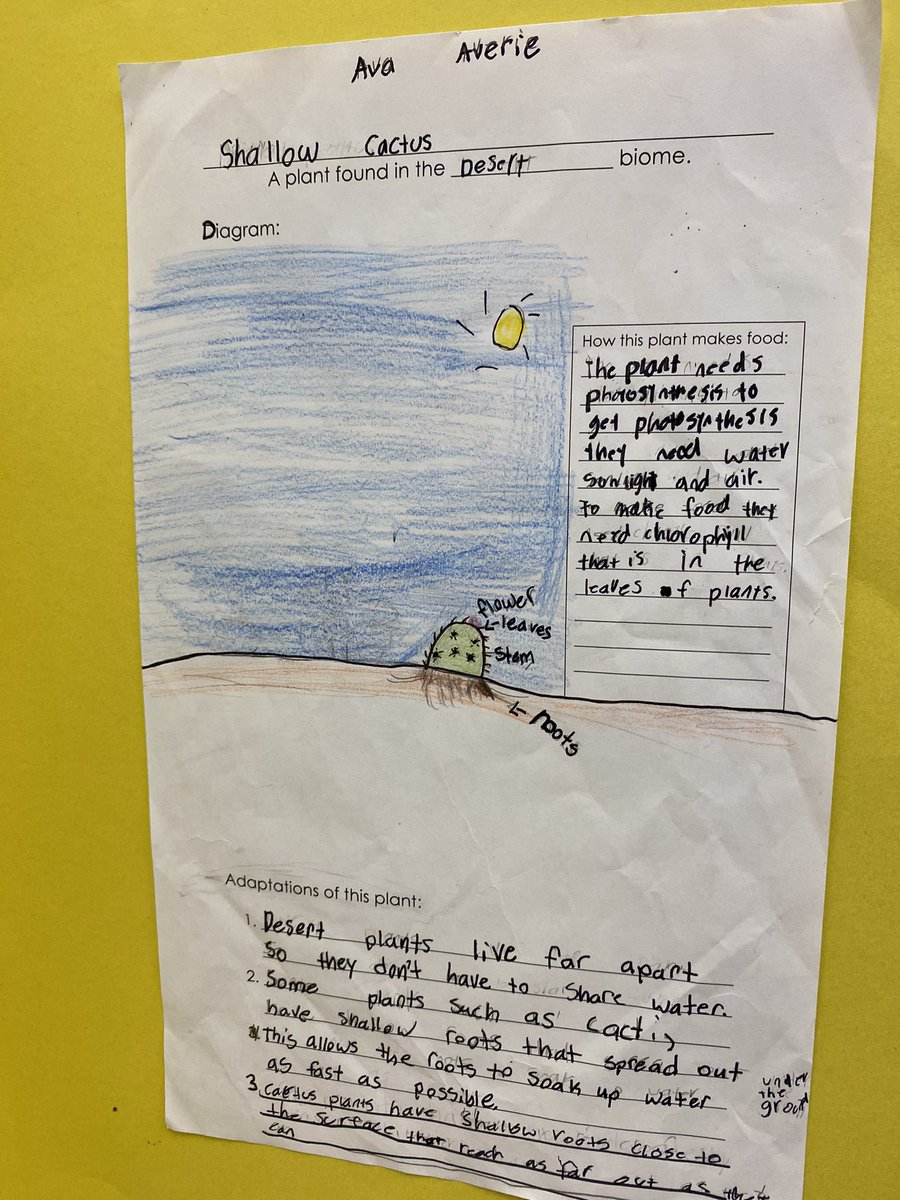 Ava Averie
Shallow Cactus
A plant found in the Desert biome.
Diagram:
How this plant makes food:
The plant needs
photosynthesis to
get photosynthesis
they need water
sunlight and air.
To make food they
need chlorophyll
that is in the
leaves of plants.
flower
leaves
Stem
roots
Adaptations of this plant:
1. Desert plants live far apart
So they don't have to share water.
2. Some plants such as Cacti,
have shallow roots that spread out
This allows the roots to soak up water
as fast as possible.
under
the
3. Cactus plants have Shallow roots close to
the surface that reach as far out as they
can